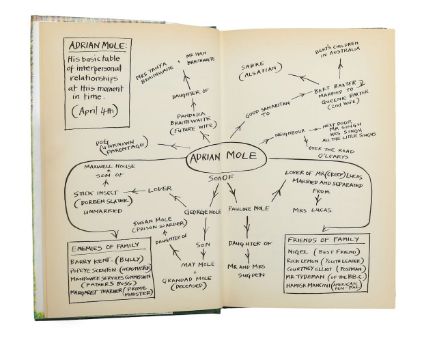 ADRIAN MOLE:
His basic table
of interpersonal
relationships
at this moment
in time.
(April 4th)
MRS TANIA
BRAITHWAITE
MR IVAN
BRAITHWAITE
DAUGHTER OF
PANDORA
BRAITHWAITE
(FUTURE WIFE)
DOG
(UNKNOWN
PARENTAGE)
SABRE
(ALSATIAN)
BERT'S CHILDREN
IN AUSTRALIA
BERT BAXTER
MARRIED TO
QUEENIE BAXTER
GOOD SAMARITAN TO
NEIGHBOUR
NEXT DOOR
MR SINGH
MRS SINGH
ALL THE LITTLE SINGHS
OVER THE ROAD
O'LEARYS
ADRIAN MOLE
SON OF
MAXWELL HOUSE
SON OF
STICK INSECT
(DOREEN SLATER)
UNMARRIED
LOVER
GEORGE MOLE
PAULINE MOLE
LOVER OF MR (CREEP) LUCAS
MARRIED AND SEPARATED
FROM
MRS LUCAS
SUSAN MOLE
(PRISON WARDER)
DAUGHTER OF
SON
MAY MOLE
GRANDAD MOLE
(DECEASED)
DAUGHTER OF
MR AND MRS
SUGDEN
ENEMIES OF FAMILY
BARRY KENT (BULLY)
POPEYE SCRUTON (HEADMASTER)
MANPOWER SERVICES COMMISSION
(FATHER'S BOSS)
MARGARET THATCHER (PRIME MINISTER)
FRIENDS OF FAMILY
NIGEL (BEST FRIEND)
RICK LEMON (YOUTH LEADER)
COURTNEY ELLIOT (POSTMAN)
MR TYDEMAN (OF THE B.B.C.)
HAMISH MANCINI (AMERICAN PEN PAL)